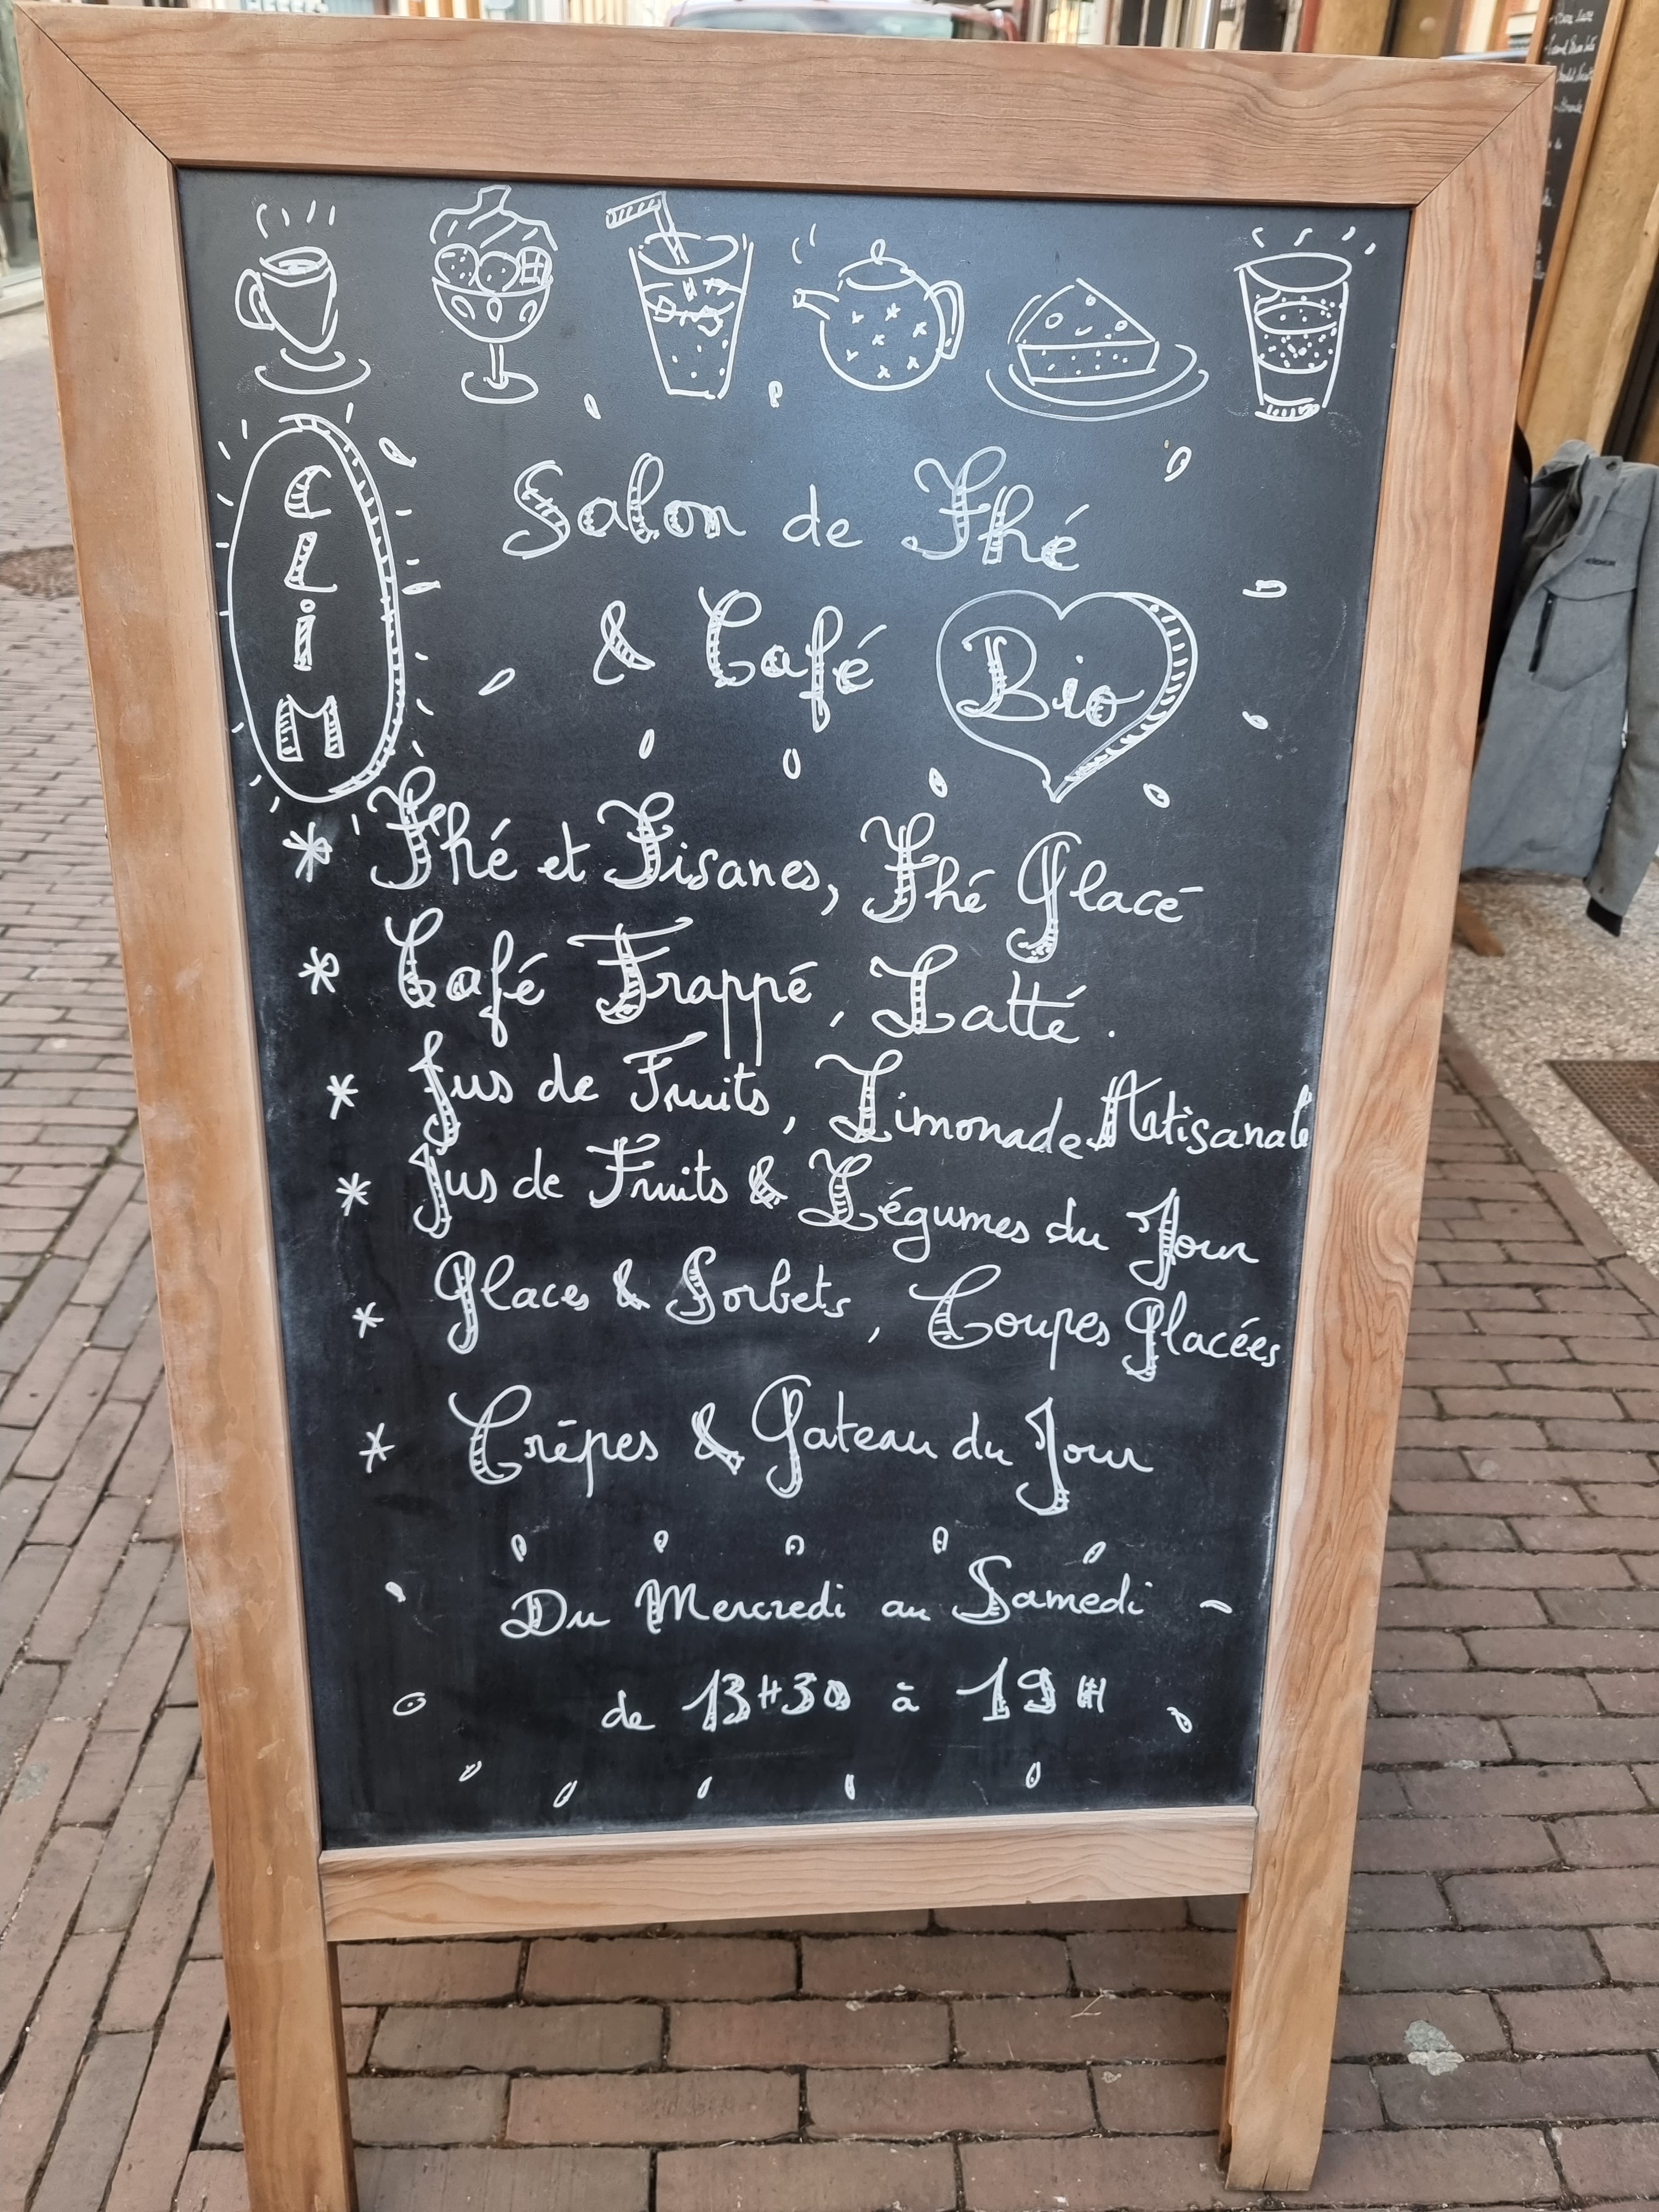 CLiM
Salon de Thé
& Café Bio
* Thé et Tisanes, Thé Glacé
* Café Frappé, Latté.
* Jus de Fruits, Limonade Artisanale
* Jus de Fruits & Légumes du Jour
* Glaces & Sorbets, Coupes Glacées
* Crêpes & Gateau du Jour
Du Mercredi au Samedi
de 13H30 à 19H